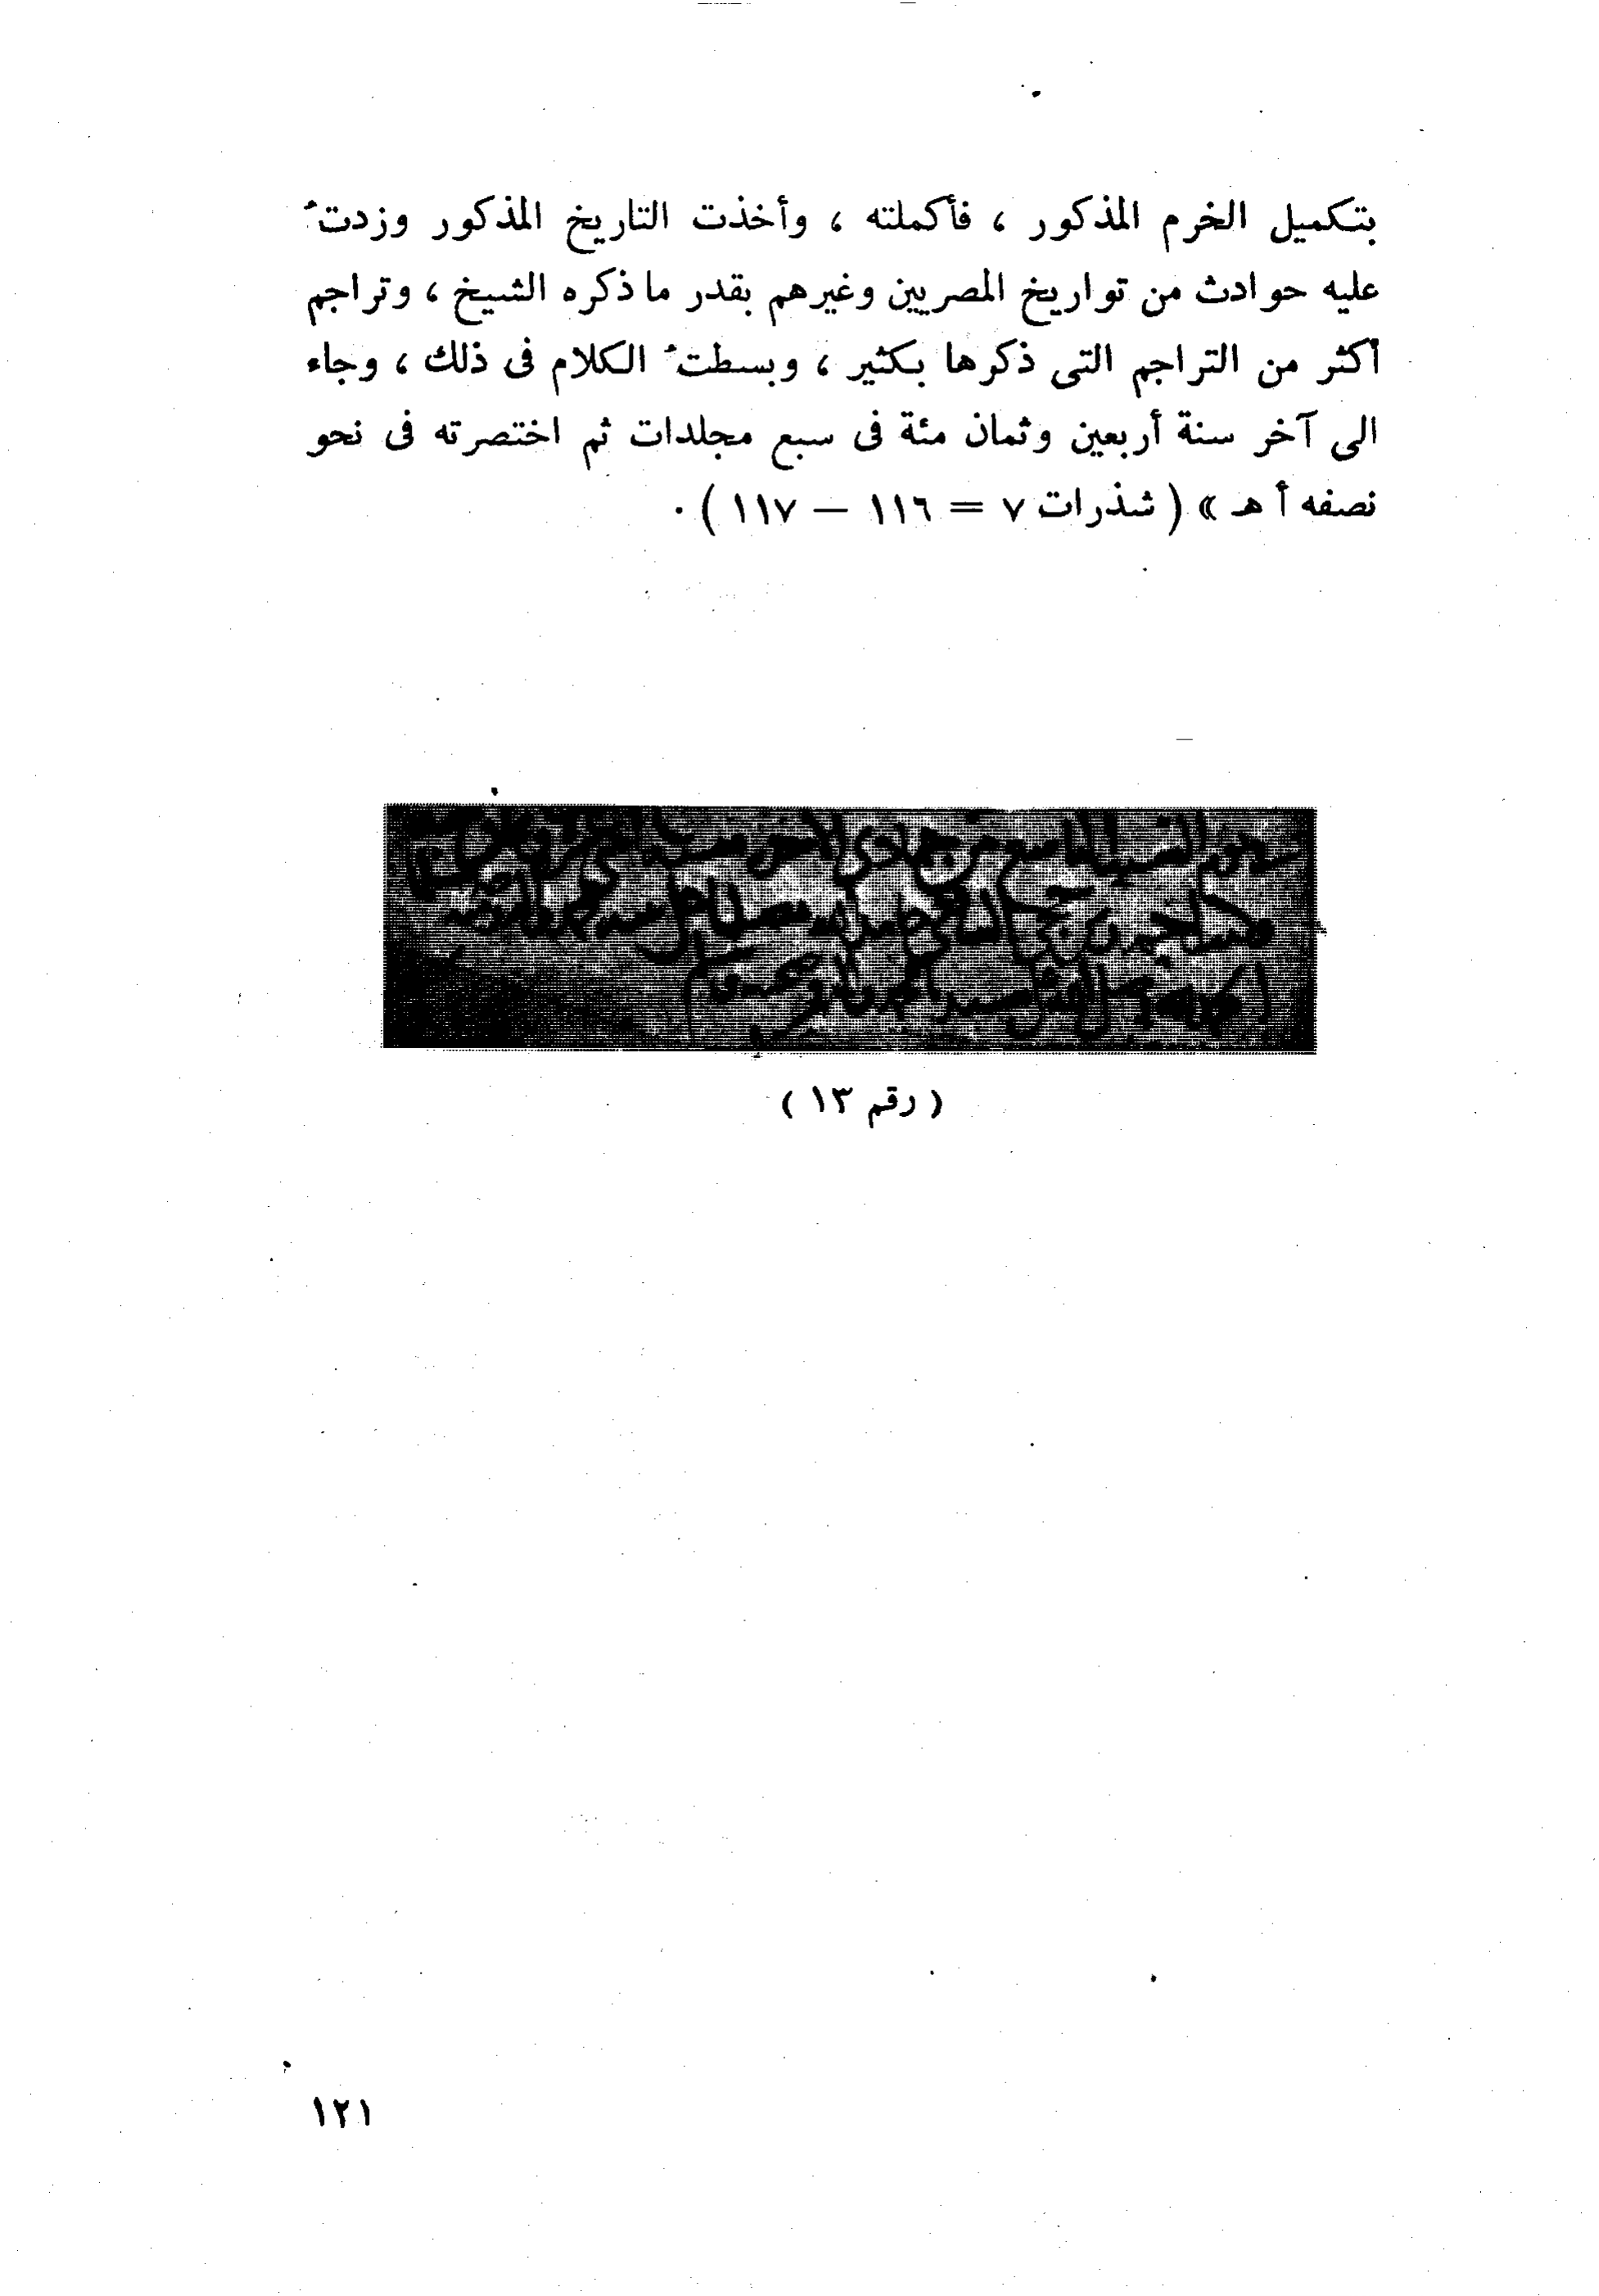 بتكميل الخرم المذكور ، فأكملته ، وأخذت التاريخ المذكور وزدتُ
عليه حوادث من تواريخ المصريين وغيرهم بقدر ما ذكره الشيخ ، وتراجم
أكثر من التراجم التى ذكرها بكثير ، وبسطتُ الكلام فى ذلك ، وجاء
الى آخر سنة أربعين وثمان مئة فى سبع مجلدات ثم اختصرته فى نحو
نصفه أ هـ » ( شذرات ٧ = ١١٦ – ١١٧ ) .
( رقم ١٣ )
١٢١